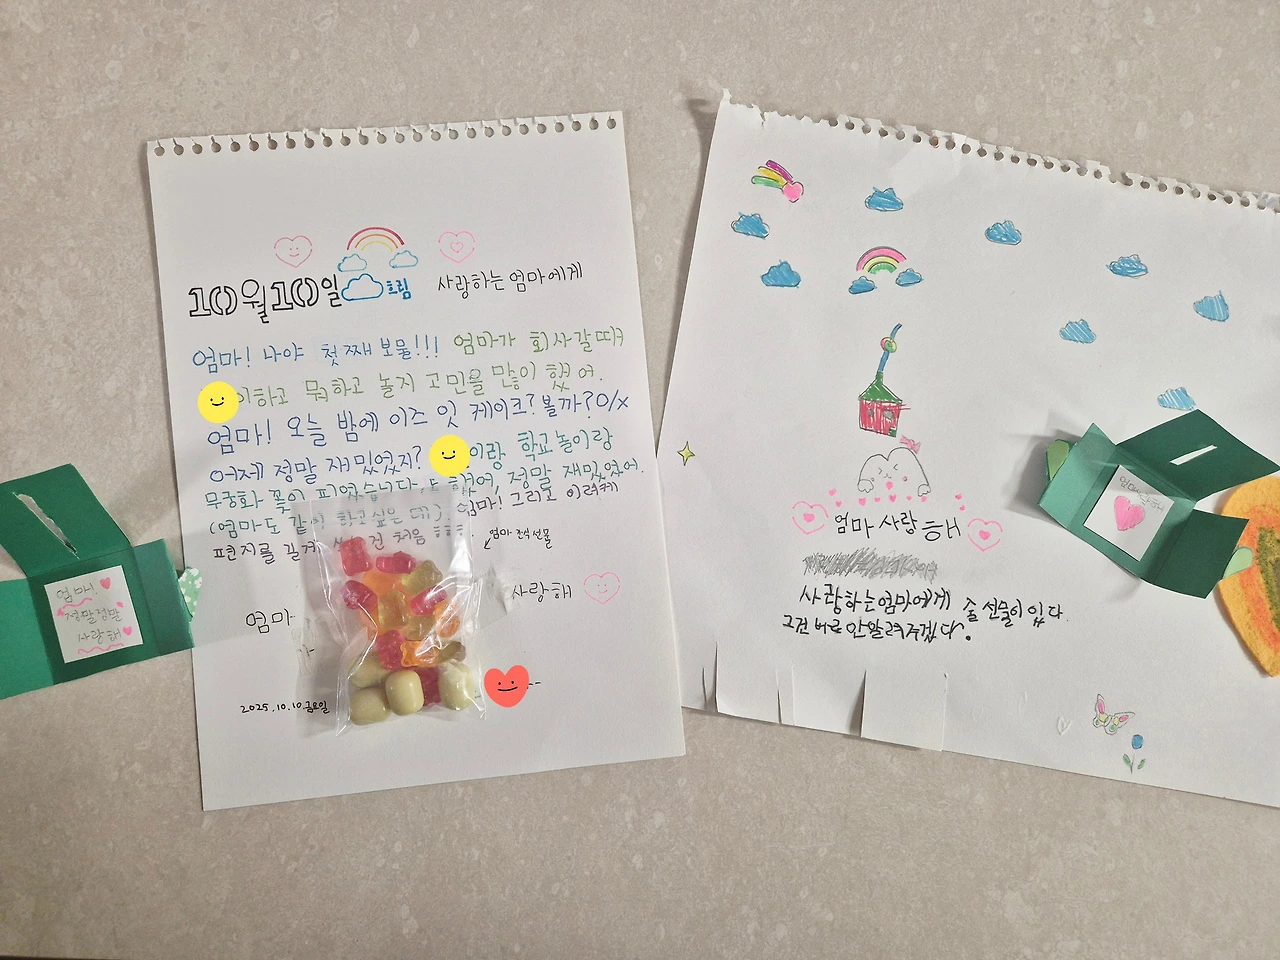 10월10일 흐림 사랑하는 엄마에게
엄마! 나야 첫째 보물!!! 엄마가 회사갈때
이하고 뭐하고 놀지 고민을 많이 했어.
엄마! 오늘 밤에 이즈 잇 케이크? 볼까? O/X
어제 정말 재밌었지? 이랑 학교놀이랑
무궁화 꽃이 피었습니다. 했어, 정말 재밌었어.
(엄마도 같이 하고싶은 데?) 엄마! 그리고 이렇게
편지를 길게 건 처음
엄마 간식 선물
엄마 사랑해
2025.10.10.금요일
엄마!
정말정말
사랑해
엄마 사랑해
사랑하는엄마에게 줄 선물이 있다.
그건 바로 안알려주겠다.
엄마 사랑해